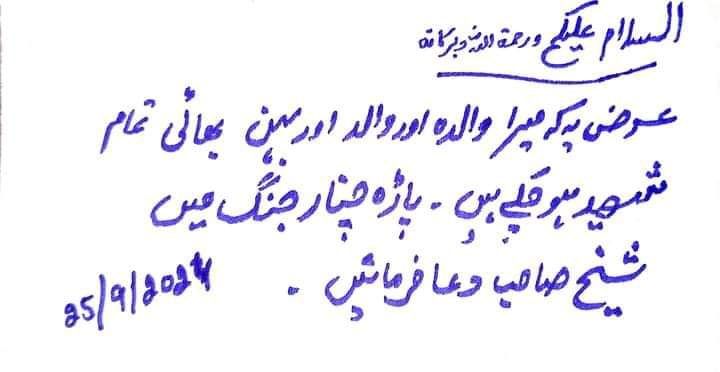 السلام علیکم ورحمۃ اللہ وبرکاتہ
عرض یہ کہ میرا والدہ اور والد اور بہن بھائی تمام
شہید ہو چکے ہیں ۔ پاڑہ چنار جنگ میں
شیخ صاحب دعا فرمائیں ۔
25/9/2024